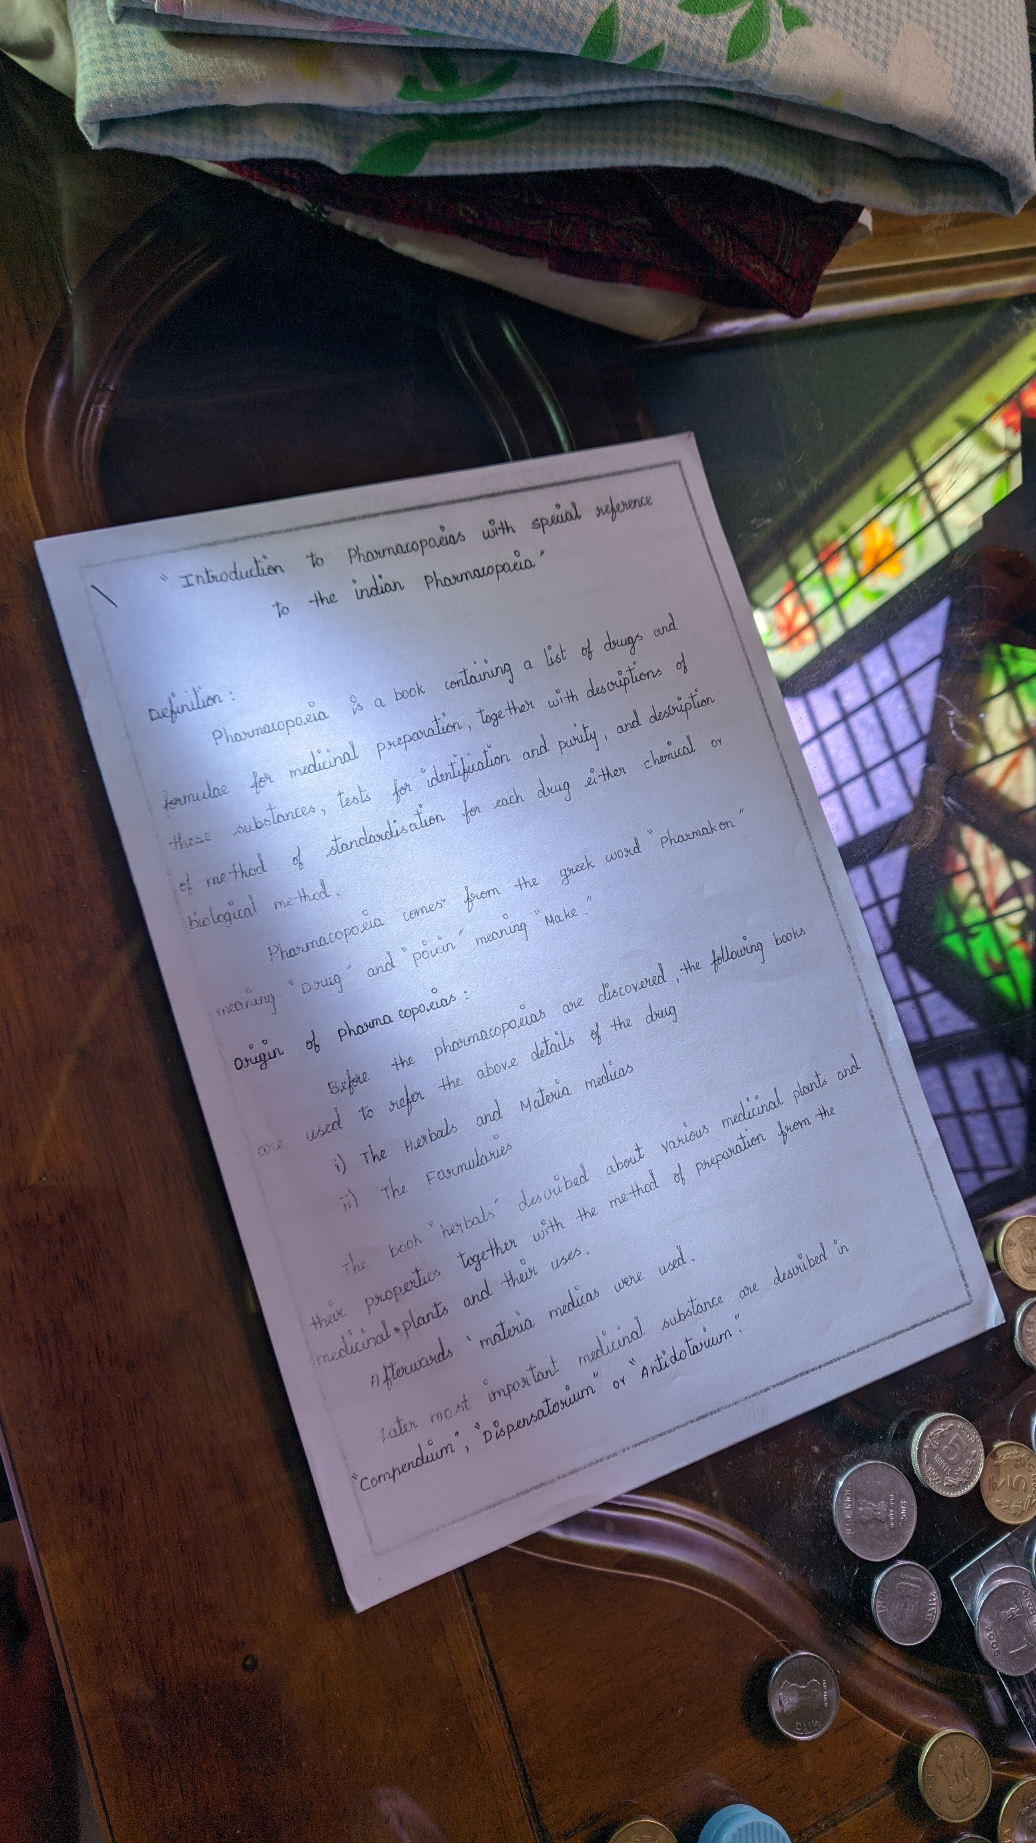 "Introduction to Pharmacopoeias with special reference
to the indian Pharmacopoeia"
Definition :
Pharmacopoeia is a book containing a list of drugs and
formulae for medicinal preparation, together with descriptions of
these substances, tests for identification and purity, and description
of method of standardisation for each drug either chemical or
biological method.
Pharmacopoeia comes from the greek word "Pharmakon"
meaning "Drug" and "poiein" meaning "Make."
Origin of Pharmacopoeias :
Before the pharmacopoeias are discovered, the following books
are used to refer the above details of the drug
i) The Herbals and Materia medicas
ii) The Formularies
The book "herbals" described about various medicinal plants and
their properties together with the method of preparation from the
medicinal plants and their uses.
Afterwards 'materia medicas were used.
Later most important medicinal substance are described in
"Compendium", "Dispensatorium" or "Antidotarium".
5
1
2006